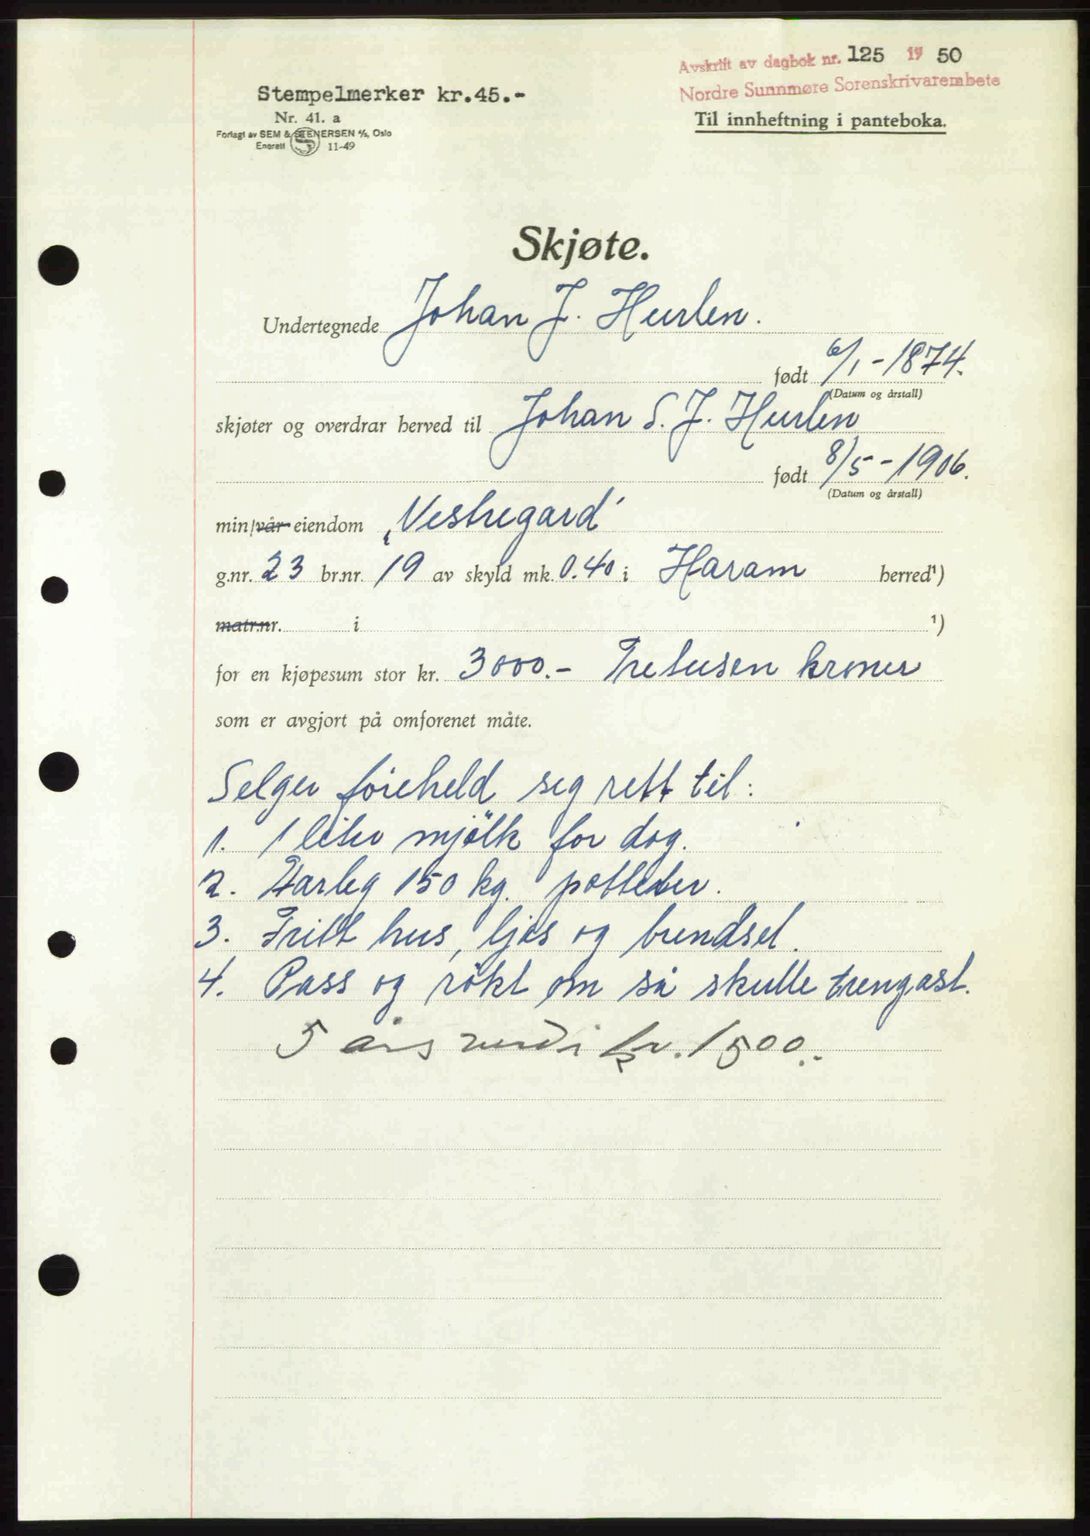 Avskrift av dagbok nr. 125 19 50
Nordre Sunnmøre Sorenskrivarembete
Til innheftning i panteboka.
Stempelmerker kr.45.-
Nr. 41. a
Forlagt av SEM & STENERSEN A/s, Oslo
Enerett 11-49
Skjøte.
Undertegnede Johan J. Hurlen.
født 6/1-1874.
(Datum og årstall)
skjøter og overdrar herved til Johan S. J. Hurlen
født 8/5-1906.
(Datum og årstall)
min/vår eiendom „Vestregard"
g.nr. 23 br.nr. 19 av skyld mk. 0.40 i Haram herred¹)
matr.nr. i ¹)
for en kjøpesum stor kr. 3000.- Tretusen kroner
som er avgjort på omforenet måte.
Selger föreheld seg rett til:
1. 1 liter mjölk for dag.
2. Årleg 150 kg. potteter.
3. Fritt hus, ljos og brendsel.
4. Pass og rökt om så skulle trengast.
5 års verdi kr. 1500.-